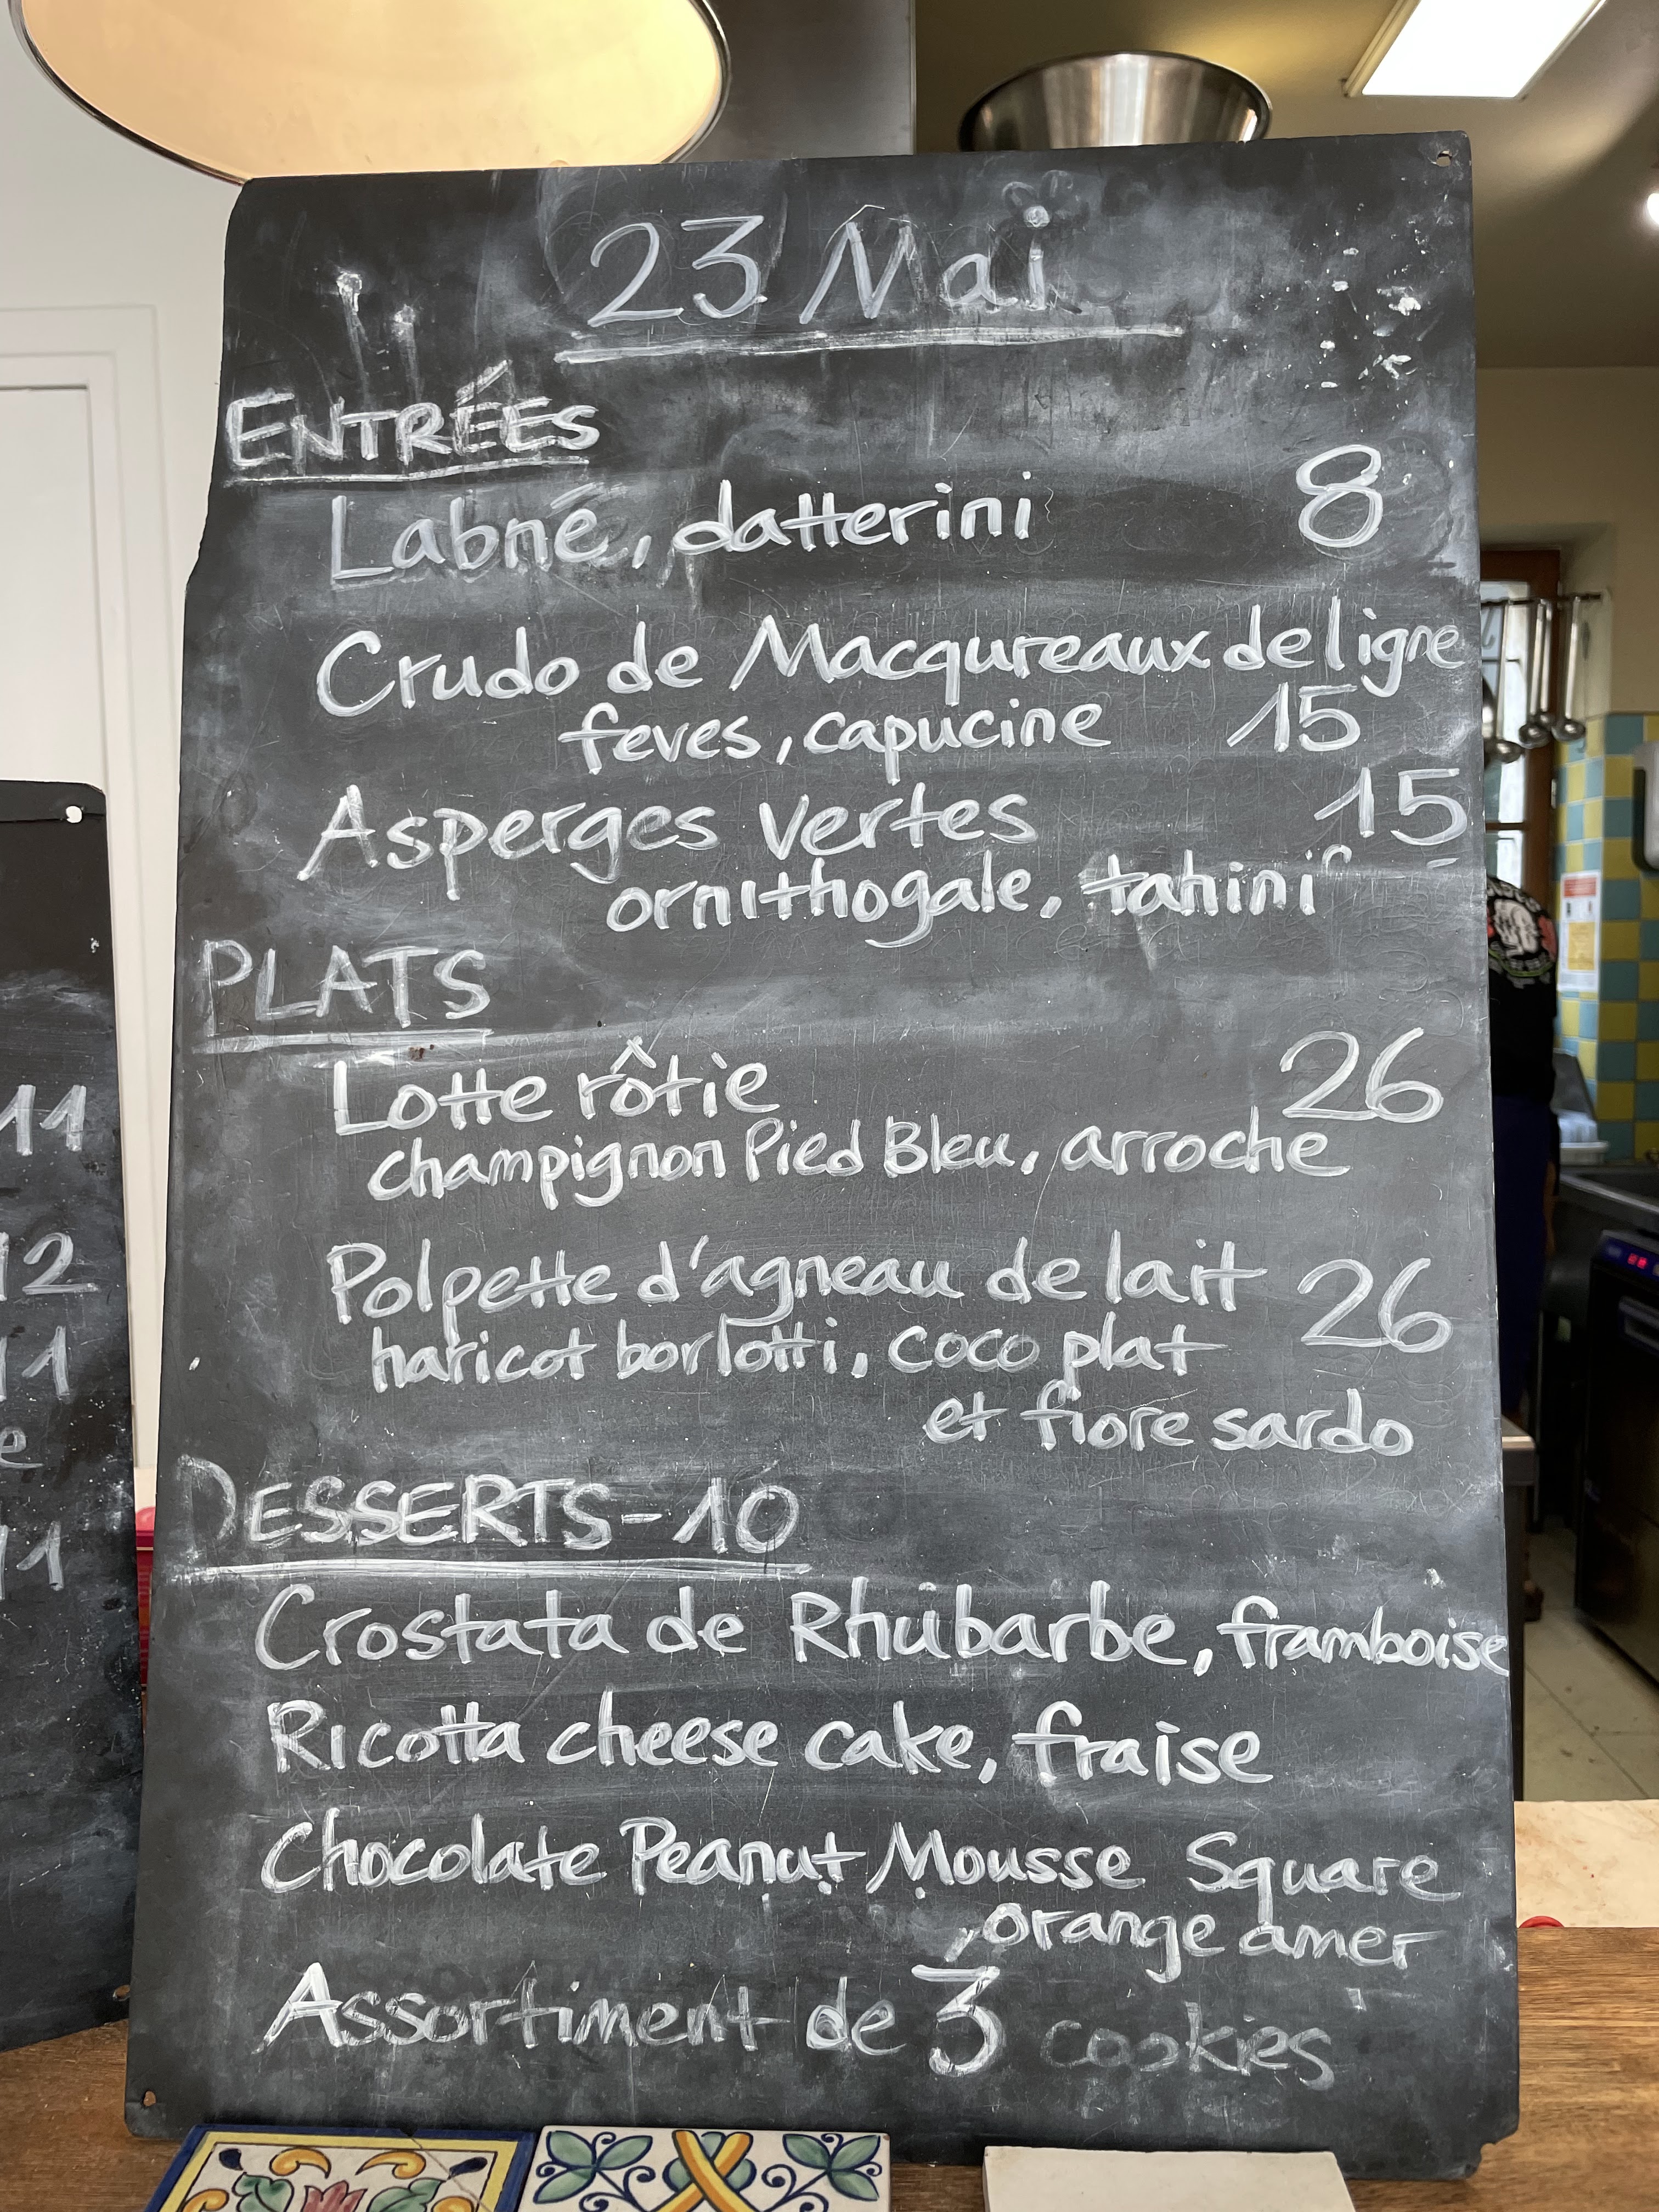 23 Mai
ENTRÉES
Labné, datterini 8
Crudo de Macqureaux de ligne
feves, capucine 15
Asperges vertes 15
ornithogale, tahini
PLATS
Lotte rôtie 26
champignon Pied Bleu, arroche
Polpette d'agneau de lait 26
haricot borlotti, coco plat
et fiore sardo
DESSERTS-10
Crostata de Rhubarbe, framboise
Ricotta cheese cake, fraise
Chocolate Peanut Mousse Square
, orange amer
Assortiment de 3 cookies
11
12
11
e
11